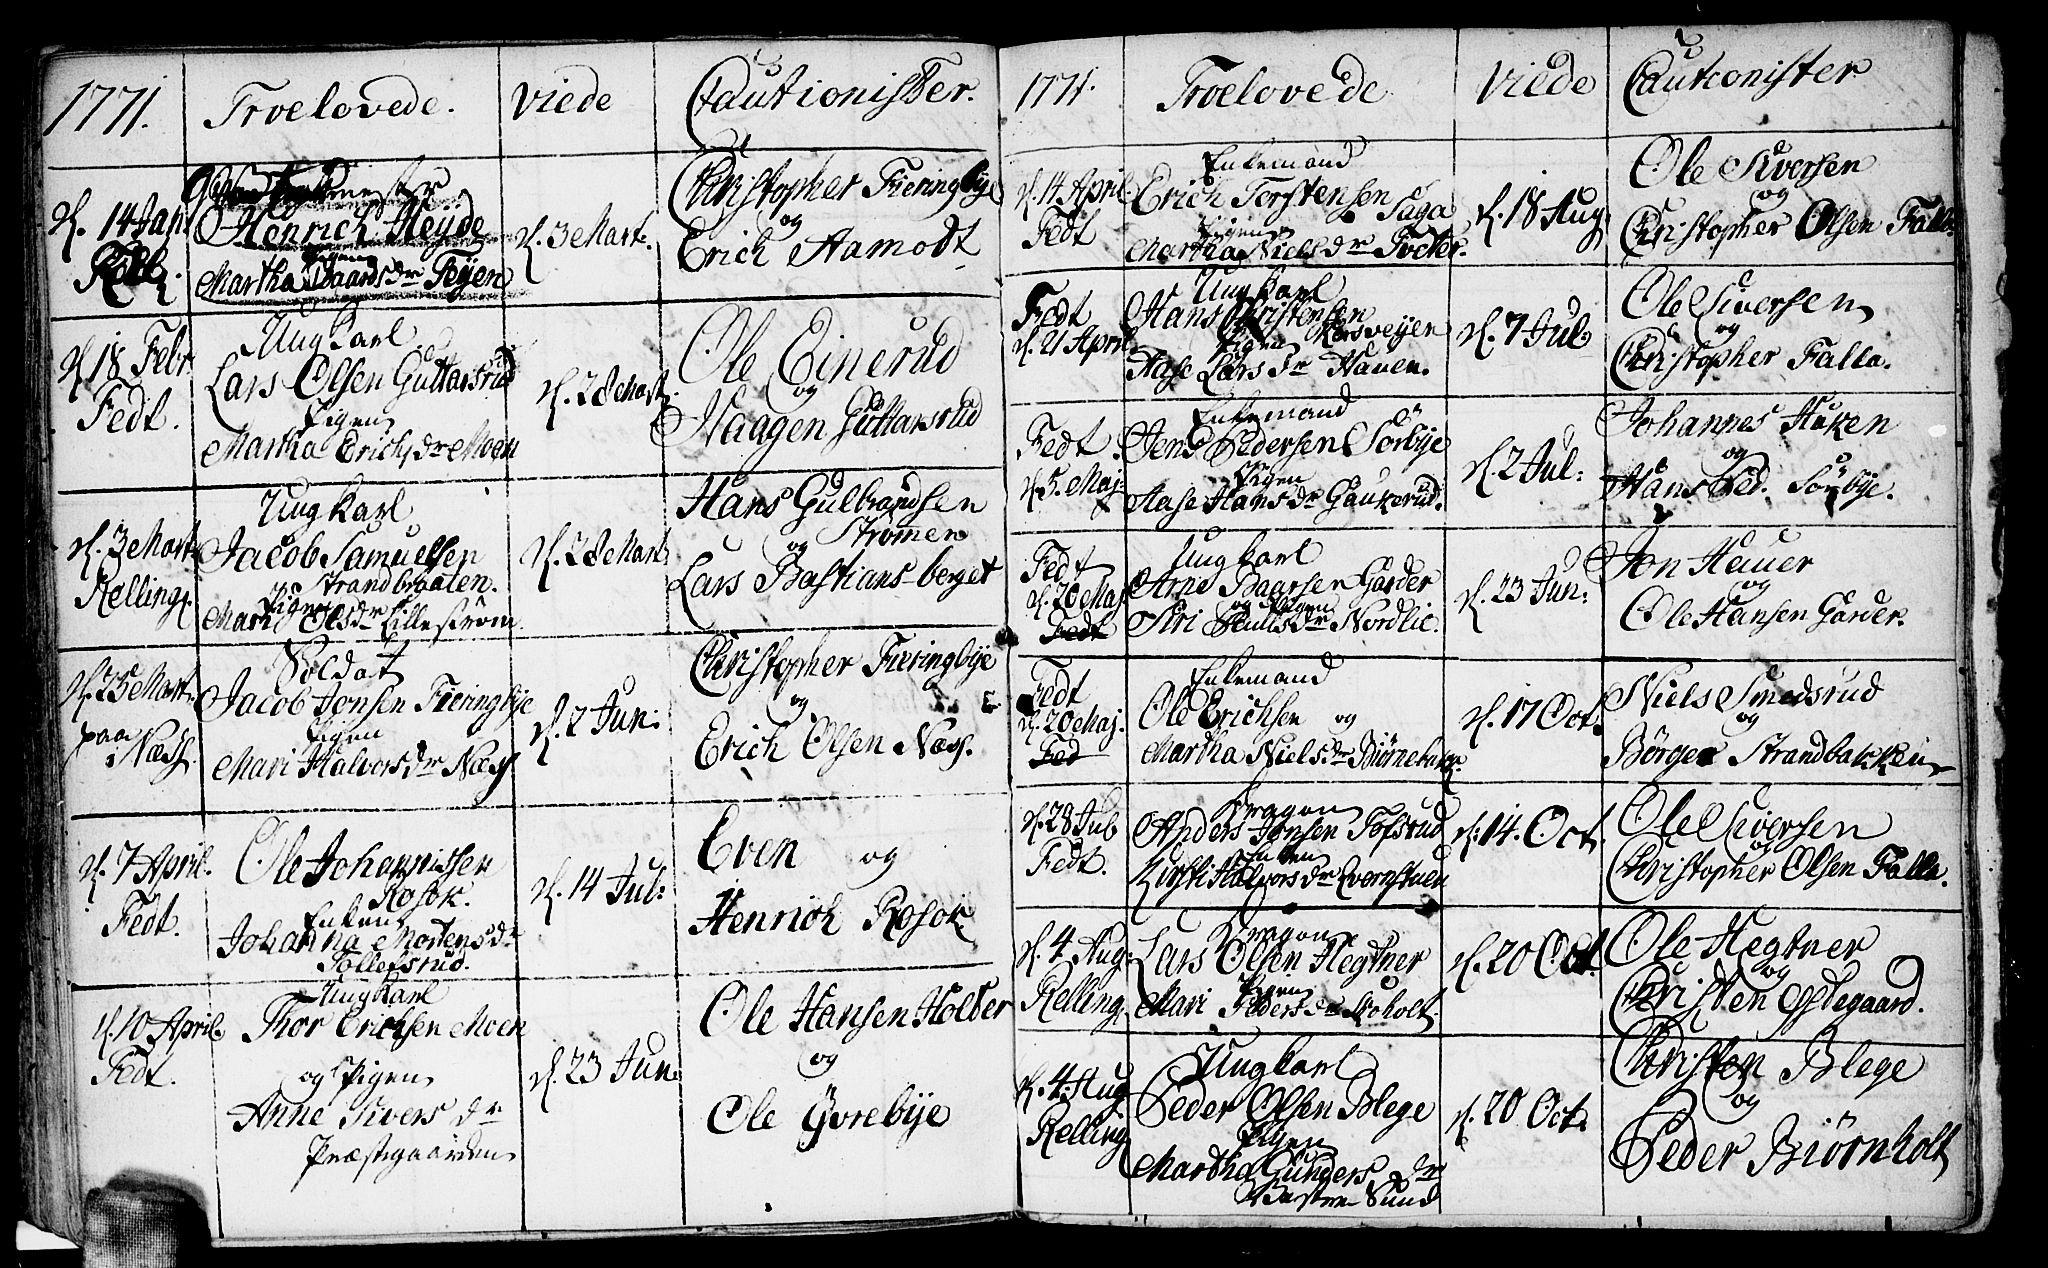 1771. Troelovede. Viede Cautionister.
d. 14 Jan
Henrich Heyde
Pigen
Martha Baardsdr Teyen
d. 3 Mart.
Christopher Fieringbye
og
Erich Aamodt
d. 18 Febr
Fedt.
Ung Karl
Lars Olsen Guttarsrud
Pigen
Martha Erichsdr Moen
d. 28 Mart.
Ole Einerud
og
Haagen Guttarsrud
d. 3 Mart.
Relling.
Ung Karl
Jacob Samuelsen
Strandbraaten.
Pigen
Mari Olsdr Lillestrøm
d. 28 Mart
Hans Gulbrandsen
Strømen
og
Lars Bastiansberget
d. 25 Mart.
paa
Næss.
Soldat
Jacob Jonsen Fieringbye
Pigen
Mari Halvorsdr Næss
d. 2 Jun:
Christopher Fieringbye
og
Erich Olsen Næss.
d. 7 April.
Fedt.
Ole Johannissen
Rosok.
Enken
Johanna Mortensdr
Tollefsrud.
d. 14 Jul:
Even og
Henrich Rosok.
d. 10 April.
Fedt.
Ung Karl
Thor Erichsen Moen
og Pigen
Anne Siversdr
Præstgaarden
d. 23 Jun.
Ole Hansen Holter
og
Ole Yvrebye
1771. Troelovede Viede Cautionister
d. 14 April.
Fedt
Enkemand
Erich Torstensen Saga
Pigen
Martha Nielsdr Tocter.
d. 18 Aug.
Ole Siversen
og
Christopher Olsen Falla.
Fedt
d. 21 April
Ung Karl
Hans Christensen
Korsveyen
Pigen
Aase Larsdr Hauen.
d. 7 Jul:
Ole Siversen
og
Christopher Falla.
Fedt
d. 5. Maj:
Enkemand
Jens Pedersen Sörbye
Pigen
Aase Hansdr Gaukerud.
d. 2 Jul:
Johannes Haken
og
Hans Ped. Sörbye.
Fedt
d. 20 Maj.
Fedt
Ung Karl
Arne Baarsen Garder
og Pigen
Siri Paulsdr Nordlie.
d. 23 Jun:
Jon Hauer
og
Ole Hansen Garder.
Fedt
d. 20 Maj.
Fed
Enkemand
Ole Erichsen og
Martha Nielsdr Biørnebakke.
d. 17 Oct.
Niels Smedsrud
og
Börger Strandbakken
d. 28 Jul
Fedt.
Dragon
Anders Jonsen Tofsrud
Enken
Kirsti Halvorsdr Qvernstuen
d. 14. Oct.
Ole Siversen
og
Christopher Olsen Falla.
d. 4 Aug:
Relling.
Dragon
Lars Olsen Hegtner
Pigen
Mari Pedersdr
d. 20 Oct.
Ole Hegtner
og
Christen Ödegaard.
d. 4. Aug
Relling
Ung Karl
Peder Olsen Blege
Pigen
Martha Gundersdr
Vestre Sund
d. 20 Oct.
Christen Blege
og
Peder Biørnholt